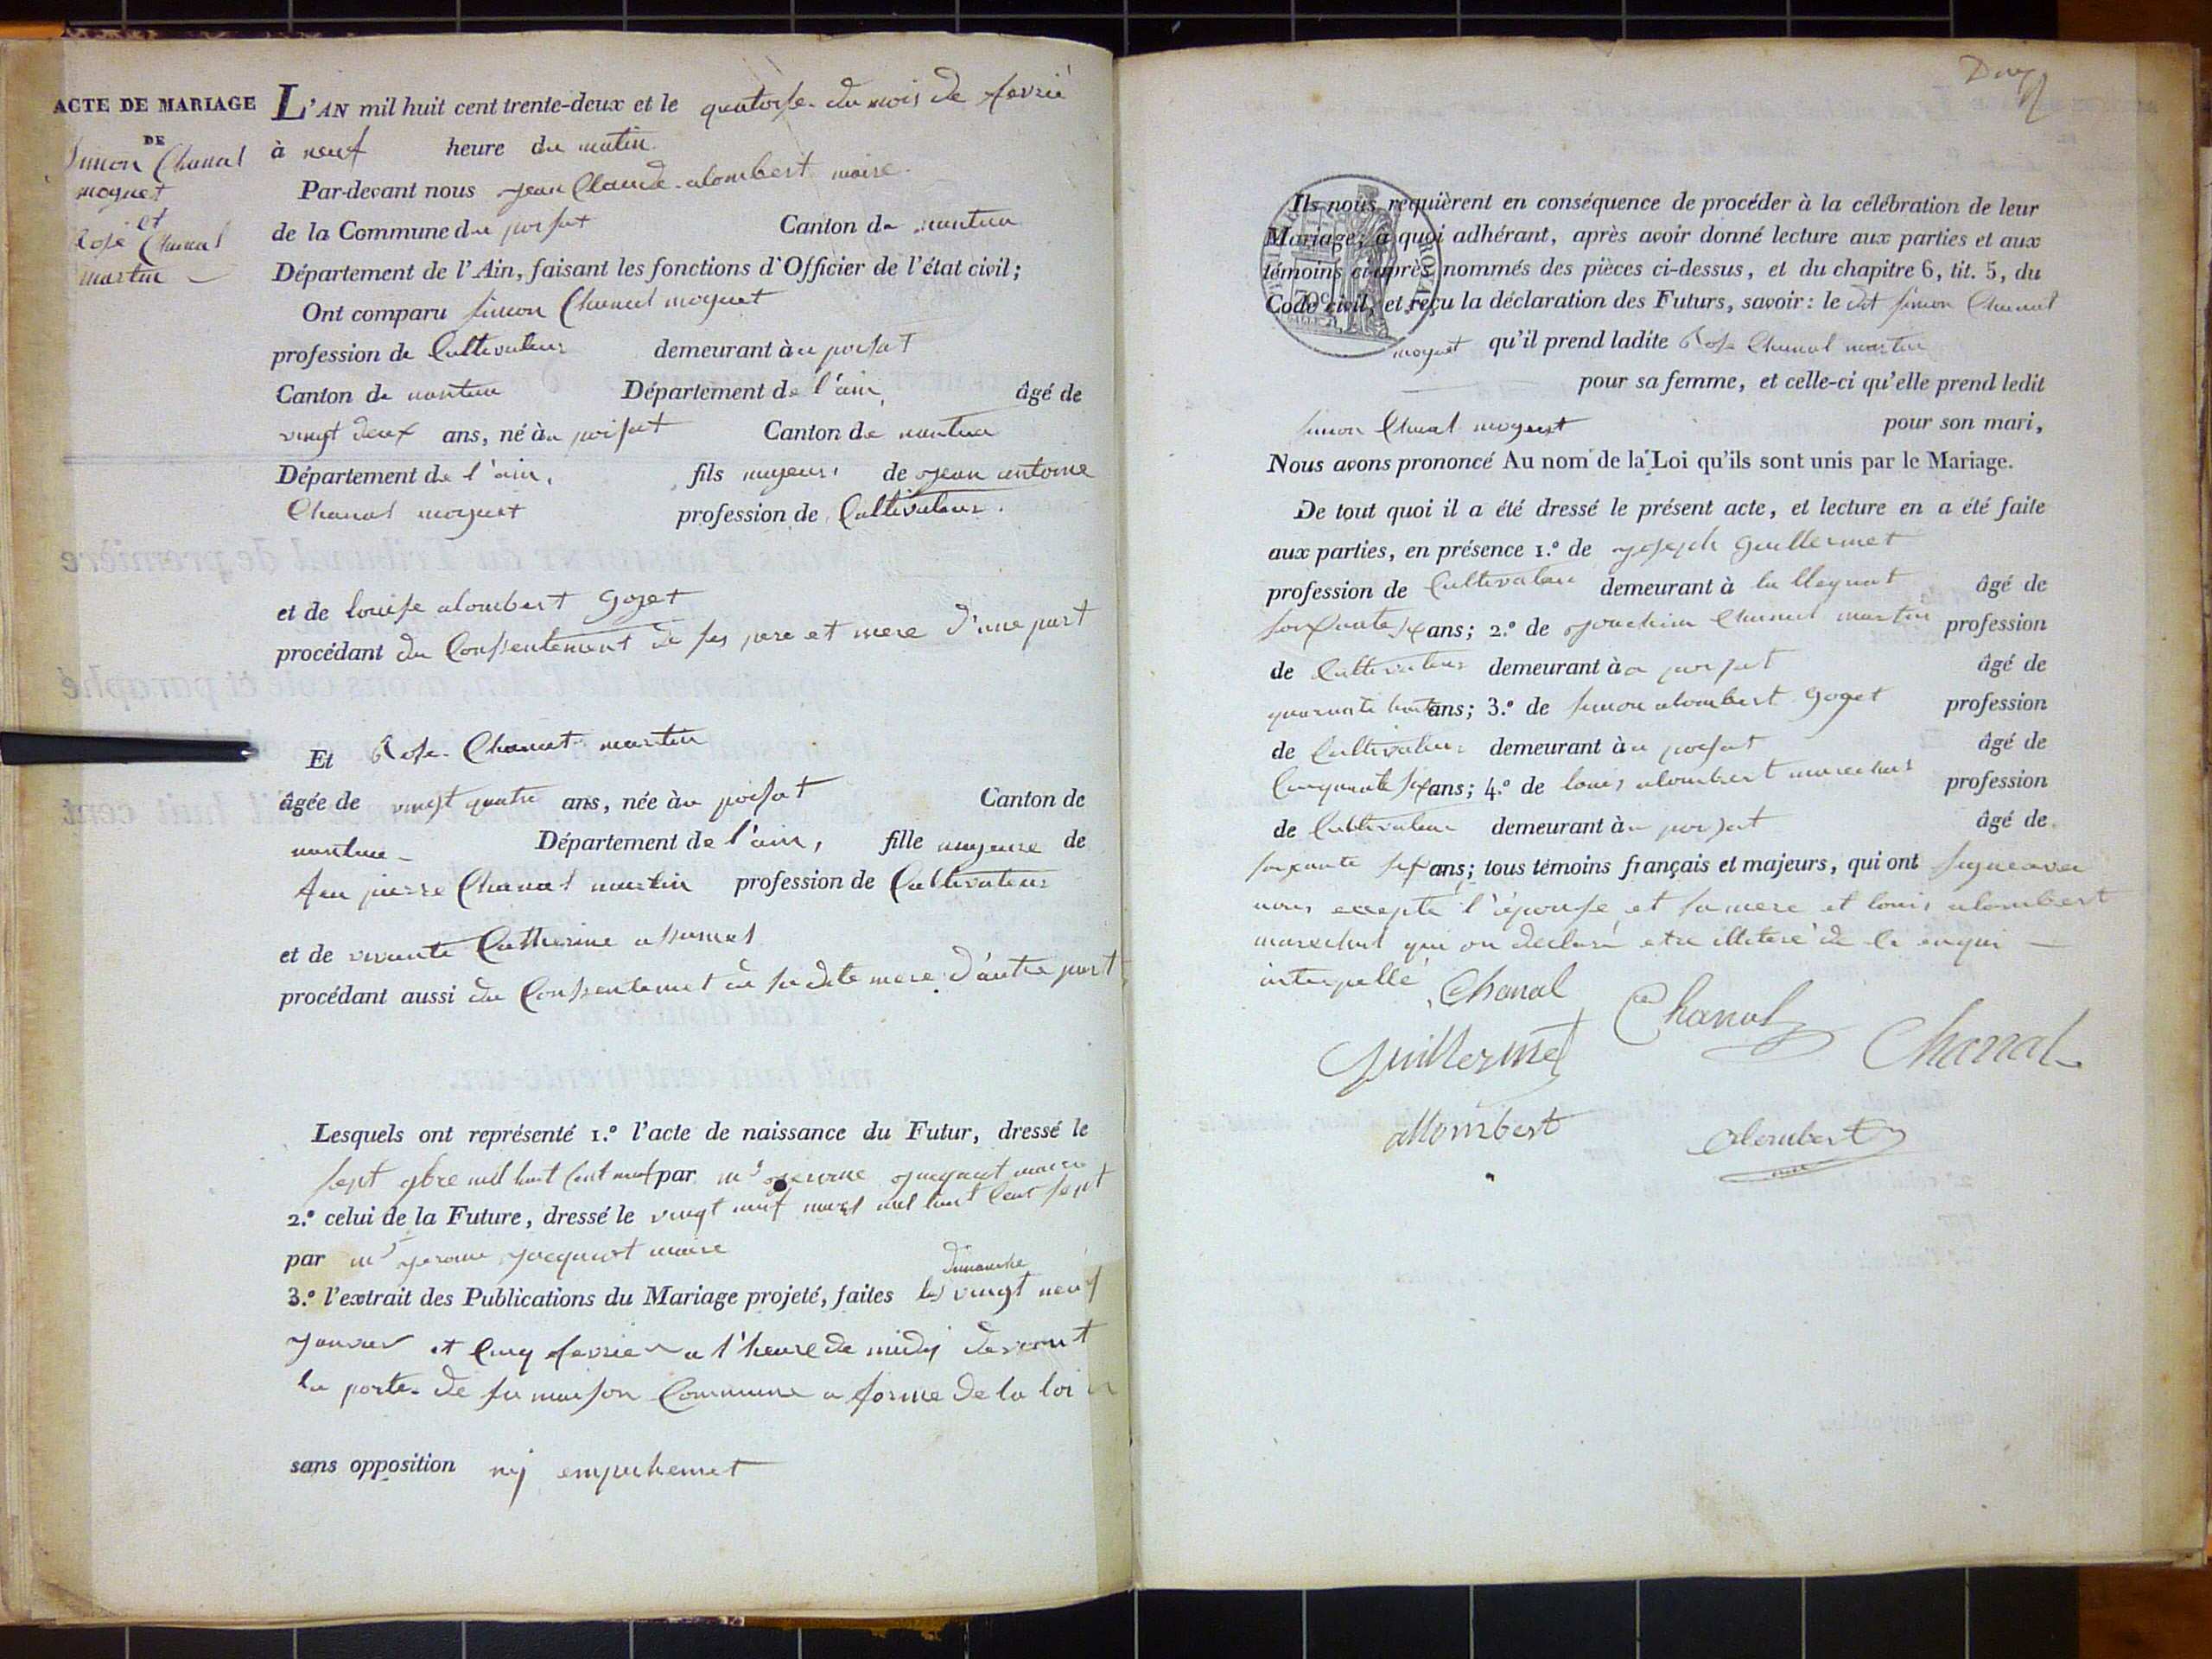 ACTE DE MARIAGE
DE
Simon Chanal
moguet
et
Rose Chanal
martin
L'AN mil huit cent trente-deux et le quatorse du mois de fevrié
à neuf heure du matin
Par-devant nous jean Claude alombert maire
de la Commune du poisat Canton de nantua
Département de l'Ain, faisant les fonctions d'Officier de l'état civil;
Ont comparu Simon Chanal moguet
profession de Cultivateur demeurant au poisat
Canton de nantua Département de l'ain, âgé de
vingt deux ans, né au poisat Canton de nantua
Département de l'ain, fils majeur de jean antoine
Chanal moguet profession de Cultivateur.
et de louise alombert goget
procédant du Consentement de ses pere et mere d'une part
Et Rose Chanal martin
âgée de vingt quatre ans, née au poisat Canton de
nantua Département de l'ain, fille majeure de
feu pierre Chanal martin profession de Cultivateur
et de vivante Catherine
procédant aussi du Consentemet de sa dite mere d'autre part
Lesquels ont représenté 1.º l'acte de naissance du Futur, dressé le
sept mil huit cent neuf par mr jerome maire
2.º celui de la Future, dressé le vingt neuf mars mil huit Cent sept
par mr jerome maire
dimanche
3.º l'extrait des Publications du Mariage projeté, faites les vingt neuf
janvier et Cinq fevrier a l'heure de midy devant
la porte de sa maison Commune a forme de la loi
sans opposition ny empechemet
Ils nous requièrent en conséquence de procéder à la célébration de leur
Mariage; à quoi adhérant, après avoir donné lecture aux parties et aux
témoins ci-après nommés des pièces ci-dessus, et du chapitre 6, tit. 5, du
Code civil, et reçu la déclaration des Futurs, savoir: le dit Simon Chanal
moguet qu'il prend ladite Rose Chanal martin
pour sa femme, et celle-ci qu'elle prend ledit
Simon Chanal moguet pour son mari,
Nous avons prononcé Au nom de la Loi qu'ils sont unis par le Mariage.
De tout quoi il a été dressé le présent acte, et lecture en a été faite
aux parties, en présence 1.º de joseph guillermet
profession de Cultivateur demeurant à âgé de
soixante ans; 2.º de joachim Chanal martin profession
de Cultivateur demeurant au poisat âgé de
quarante huit ans; 3.º de simon alombert goget profession
de Cultivateur demeurant au poisat âgé de
Cinquante six ans; 4.º de louis alombert marechal profession
de Cultivateur demeurant au poisat âgé de
soixante six ans; tous témoins français et majeurs, qui ont signe avec
nous excepté l'épouse et sa mere et louis alombert
marechal qui on declaré etre illiteré de ce enqui
interpellé
Chanal
Chanal
Chanal
Guillermet
allombert
alombert